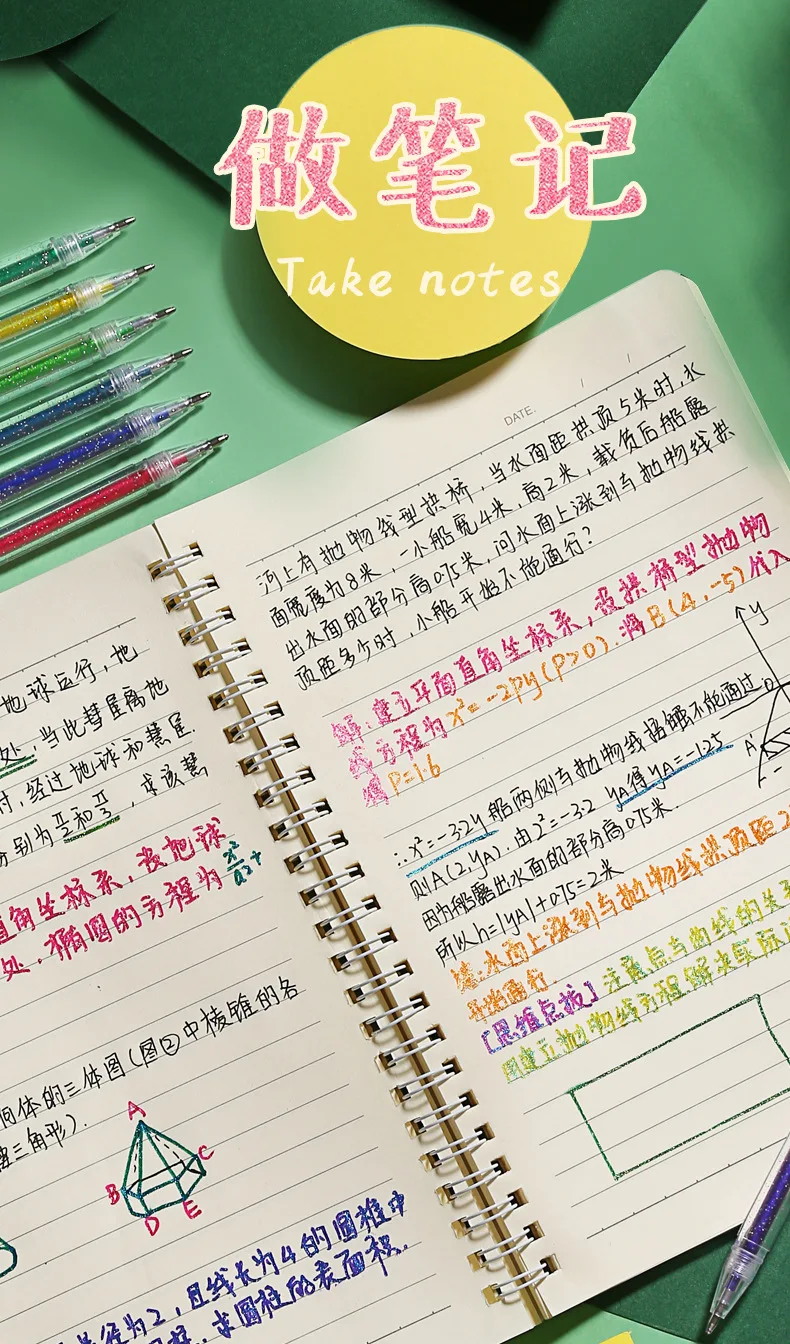 做笔记
Take notes
DATE. / /
河上有抛物线型拱桥,当水面距拱顶5米时,水
面宽度为8米,一小船宽4米,高2米,载货后船露
出水面的部分高0.75米,问水面上涨到与抛物线拱
顶距多少时,小船开始不能通行?
解:建立平面直角坐标系,设拱桥型抛物
线方程为x²=-2py(P>0).将B(4,-5)代入
得P=1.6
∴x²=-3.2y船两侧与抛物线接触不能通过
则A(2,yA).由2²=-3.2 yA得yA=-1.25
因为船露出水面的部分高0.75米.
所以h=|yA|+0.75=2米
答:水面上涨到与抛物线拱顶距2
开始通行.
[思维点拨]注意点与曲线的关系
用建立抛物线方程解决
y
A'
地球运行,地
处,当此彗星离地
时,经过地球和彗星
分别为π/2和π/3,求该彗
直角坐标系,设地球
处,椭圆的方程为x²/a²+
同体的三体图(图②中棱锥的各
三角形).
A
B
C
D
E
径为2,且线长为4的圆椎中
求圆柱的表面积.